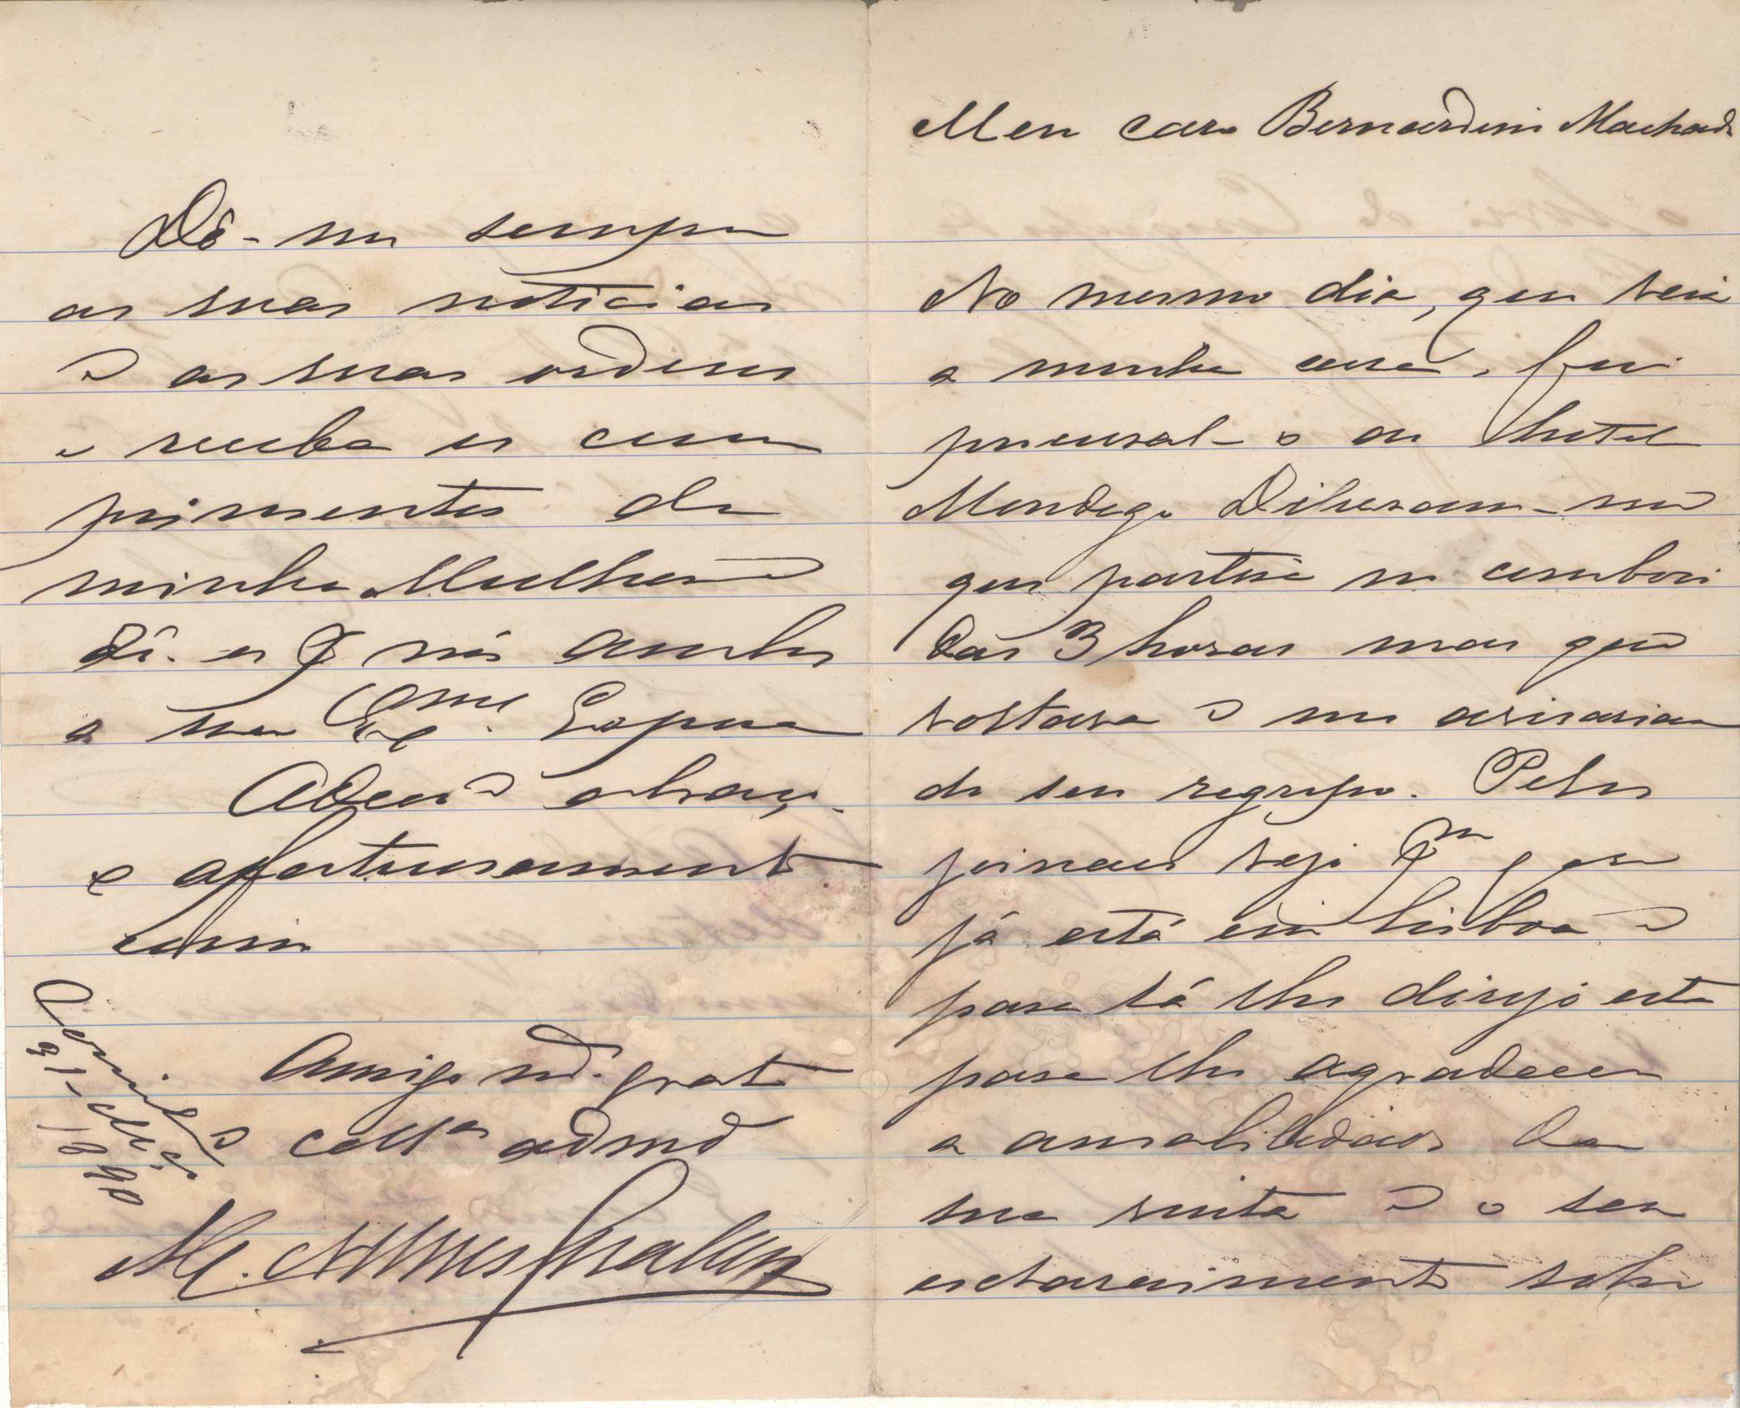 Meu caro Bernardino Machado
No mesmo dia, que veiu
a minha casa, fui
procural-o ao hotel
Mondego Disseram-me
que partira no comboio
das 3 horas mas que
voltava e me avisariam
do seu regresso. Pelos
jornaes vejo que
já está em Lisboa e
para lá lhe dirijo esta
para lhe agradecer
a amabilidade da
sua visita e o seu
esclarecimento sobre
Dê-me sempre
as suas noticias
e as suas ordens
e receba os cum
primentos de
minha Mulher e
dê-os por nós ambos
a sua Exma. Esposa
Adeus abraça-
o affectuosamente
com
Amigo mto. grato
collª admdor
M.
31-Mço
1890